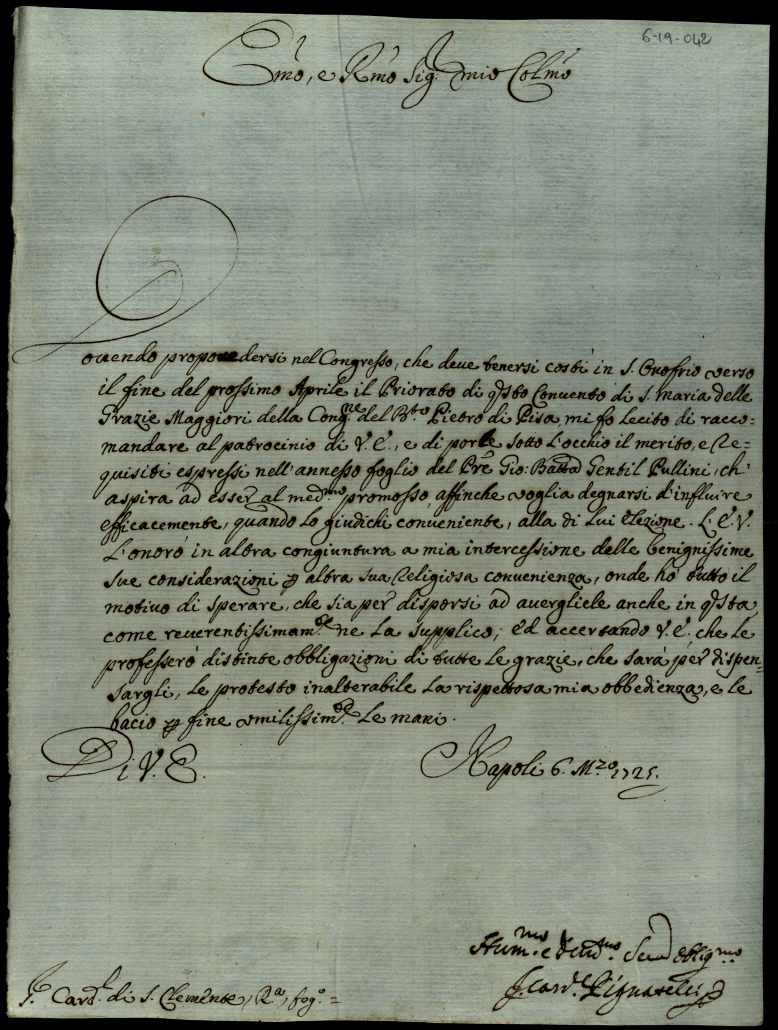 6-19-042
Emo, e Rmo Sig. dnio Colmo
Dovendo proponedersi nel Congresso, che deve tenersi costì in S. Onofrio verso
il fine del prossimo Aprile il Priorato di qsto Convento di S. Maria delle
Grazie Maggiori della Congne del Bto Pietro di Pisa, mi fo lecito di racco=
mandare al patrocinio di V. E., e di porle sotto l'occhio il merito, e re=
quisiti espressi nell'annesso foglio del Pre Gio: Batta Gentil Pullini, ch'
aspira ad esser al medmo promosso affinche voglia degnarsi d'influire
efficacemente, quando lo giudichi conveniente, alla di lui elezione. L'E. V.
l'onorò in altra congiuntura a mia intercessione delle benignissime
sue considerazioni p altra sua religiosa convenienza, onde hò tutto il
motivo di sperare, che sia per disporsi ad avergliele anche in qsta,
come reverentissimamte ne la supplico; ed accertando V. E. che le
professerò distinte obbligazioni di tutte le grazie, che sarà per dispen=
sargli, le protesto inalterabile la rispettosa mia obbedienza, e le
bacio p fine umilissimte le mani.
Di V. E. Napoli 6. Mzo 1725.
Hummo e Servo obligmo
F. Card. Pignatelli
S. Card. di S. Clemente, Ra, fogo =